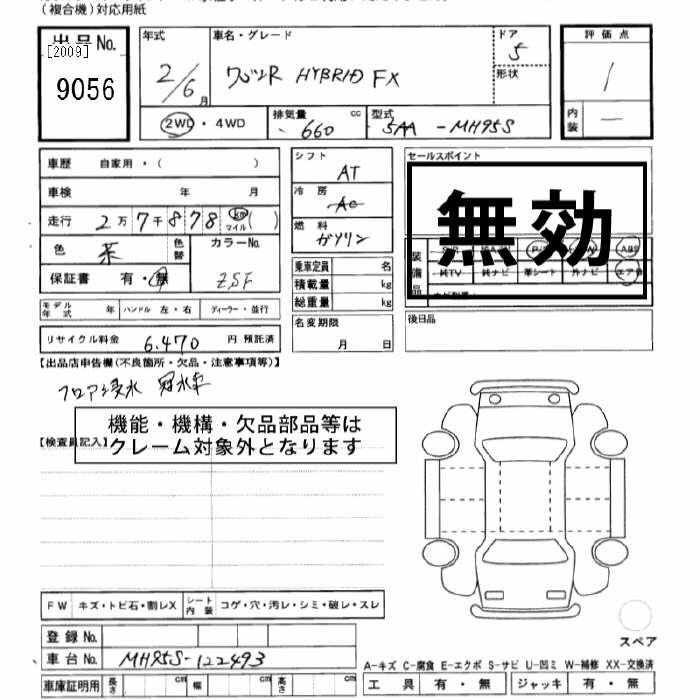 (複合機)対応用紙
出品No.
[2009]
9056
年式
2/6月
車名・グレード
ワゴンR HYBRID FX
ドア
5
形状
評価点
1
内装
―
2WD・4WD
排気量
660 cc
型式
5AA-MH95S
車歴 自家用・( )
車検 年 月
走行 2万7千878 km マイル( )
色 茶 色替
カラーNo.
ZSF
保証書 有・無
モデル年式 年 ハンドル 左・右 ディーラー・並行
リサイクル料金 6,470 円 預託済
シフト
AT
冷房
AC
燃料
ガソリン
乗車定員 名
積載量 kg
総重量 kg
名変期限
月 日
セールスポイント
無効
装備品
ABS
純TV 純ナビ 革シート 外ナビ エアB
後日品
【出品店申告欄(不良箇所・欠品・注意事項等)】
フロア浸水 冠水車
機能・機構・欠品部品等は
クレーム対象外となります
【検査員記入】
FW キズ・トビ石・割レX シート内装 コゲ・穴・汚レ・シミ・破レ・スレ
登録No.
車台No. MH95S-122493
車庫証明用 長さ cm 幅 cm 高さ cm
スペア
A-キズ C-腐食 E-エクボ S-サビ U-凹ミ W-補修 XX-交換済
工具 有・無 ジャッキ 有・無